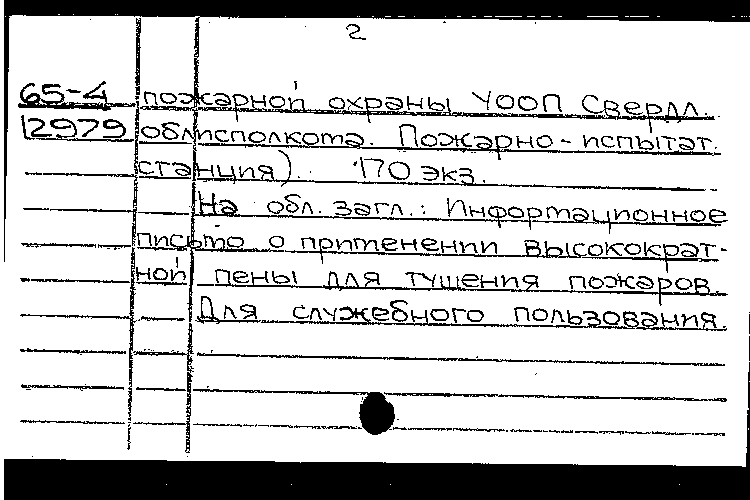 2
65-4 пожарной охраны УООП Свердл.
12979 облисполкома. Пожарно-испытат.
станция). 170 экз.
На обл. загл.: Информационное
письмо о применении высокократ-
ной пены для тушения пожаров.
Для служебного пользования.